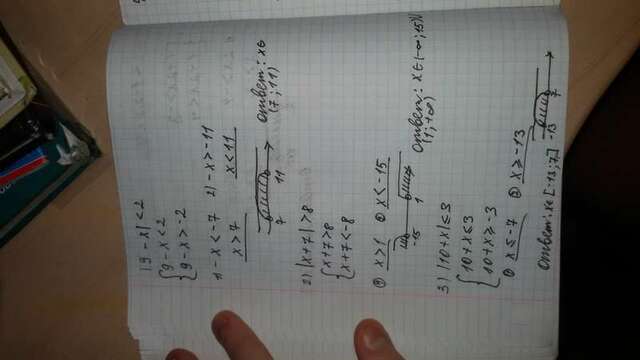 |9-x|<2
{9-x<2
{9-x>-2
1) -x<-7 2) -x>-11
x>7 x<11
7 11
ответ: x∈
(7; 11)
2) |x+7|>8
{x+7>8
{x+7<-8
① x>1 ② x<-15
-15 1
ответ: x∈(-∞; 15)∪
(1; +∞)
3) |10+x|≤3
{10+x≤3
{10+x≥-3
① x≤-7 ② x≥-13
-13 7
ответ: x∈[-13; 7]